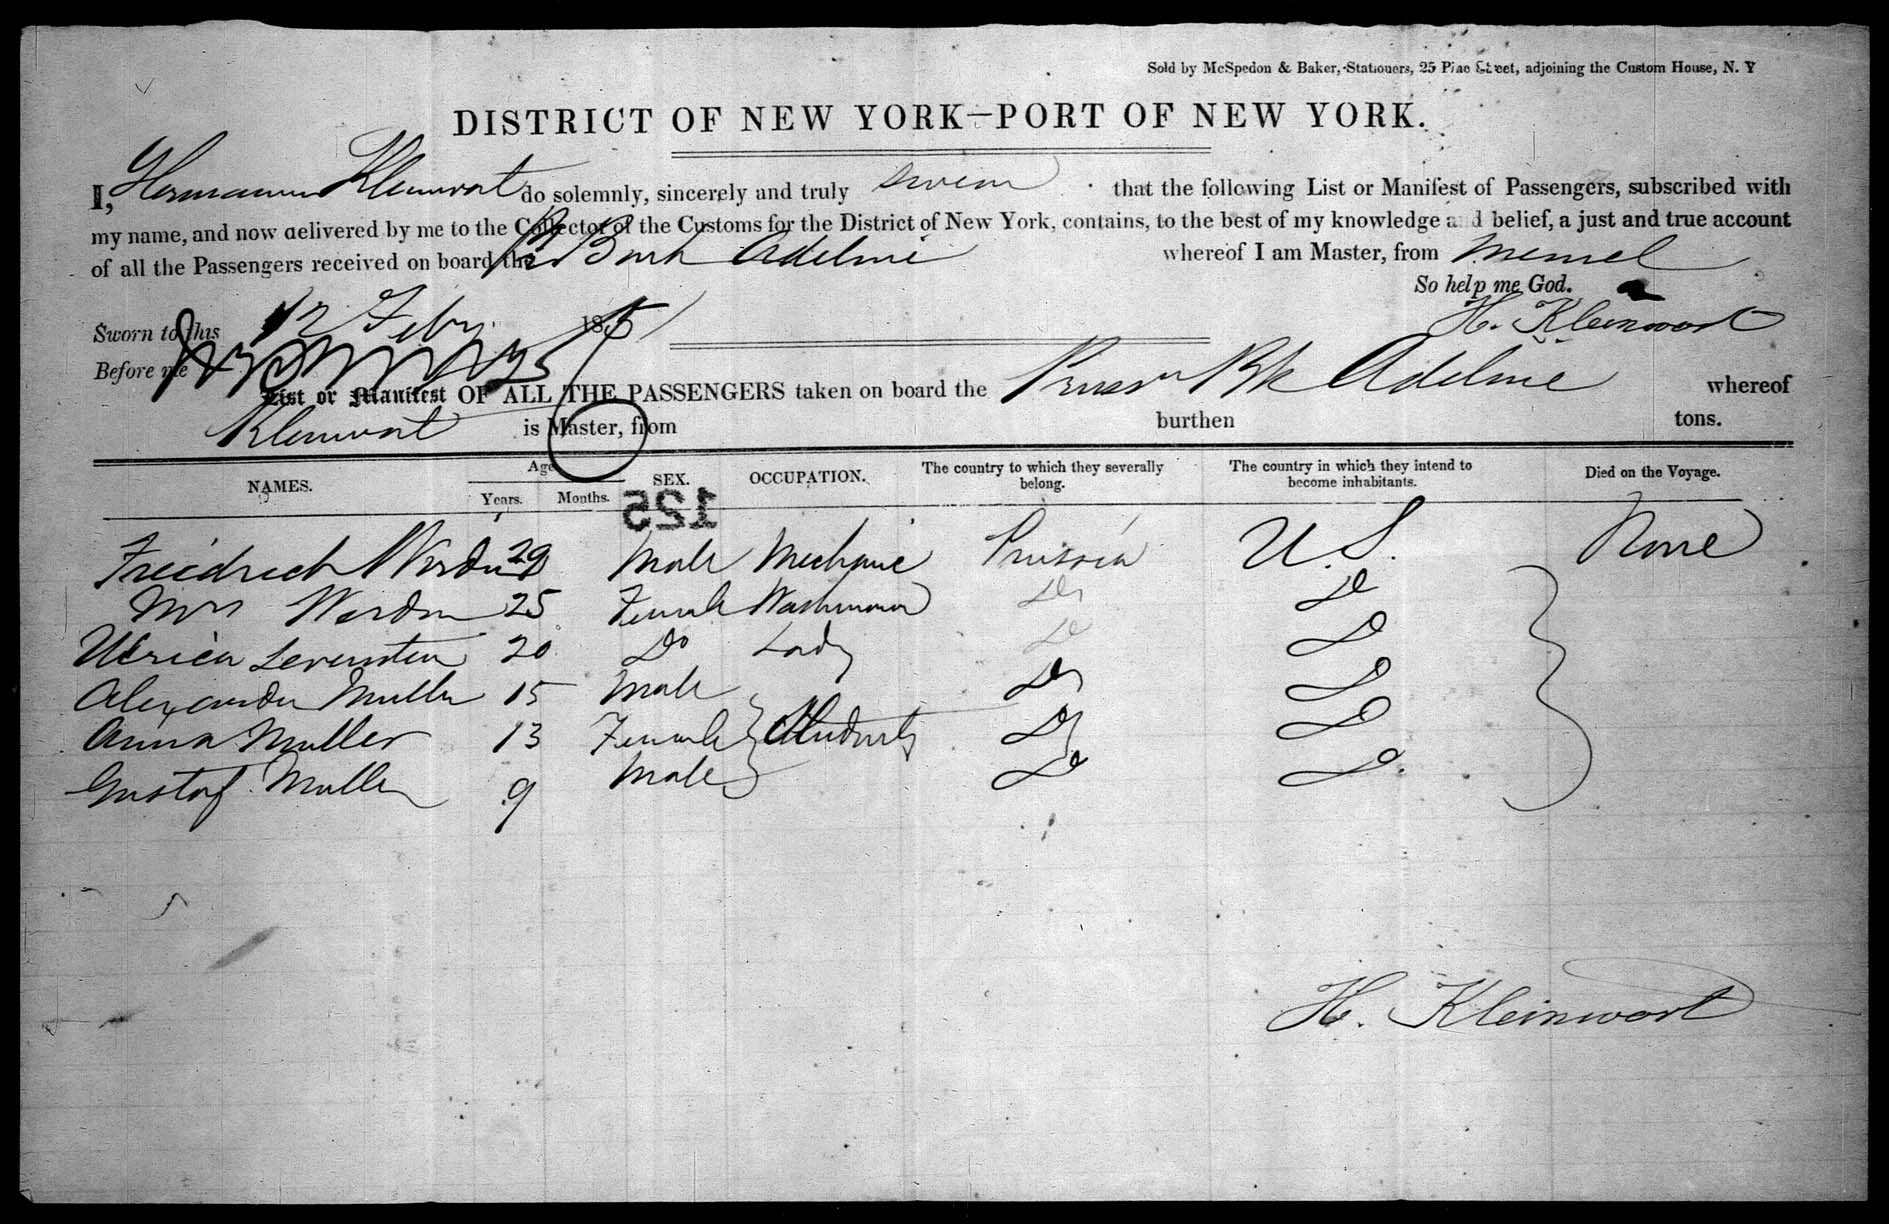 Sold by McSpedon & Baker, Stationers, 25 Pine Street, adjoining the Custom House, N. Y
DISTRICT OF NEW YORK—PORT OF NEW YORK.
I, Hermann Kleinwort do solemnly, sincerely and truly swear that the following List or Manifest of Passengers, subscribed with
my name, and now delivered by me to the Collector of the Customs for the District of New York, contains, to the best of my knowledge and belief, a just and true account
of all the Passengers received on board the Pr Bark Adeline whereof I am Master, from Memel
So help me God.
Sworn to this 12 Feby 1851 H. Kleinwort
Before me
List or Manifest OF ALL THE PASSENGERS taken on board the Prussn Bk Adeline whereof
Kleinwort is Master, from burthen tons.
NAMES. Age Years. Months. SEX. OCCUPATION. The country to which they severally belong. The country in which they intend to become inhabitants. Died on the Voyage.
125
Friedrich 29 Male Mechanic Prussia U.S. None
Mrs 25 Female Do Do
20 Do Lady Do Do
Alexander Muller 15 Male Do Do
Anna Muller 13 Female Students Do Do
Gustaf Muller 9 Male Do Do
H. Kleinwort